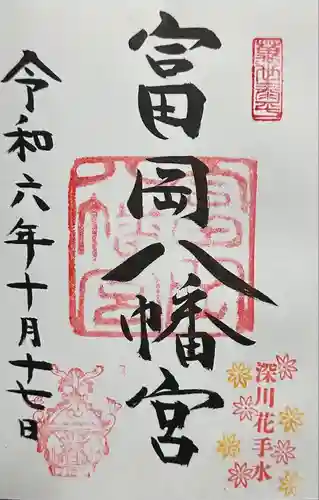 富岡八幡宮
令和六年十月十七日
深川花手水